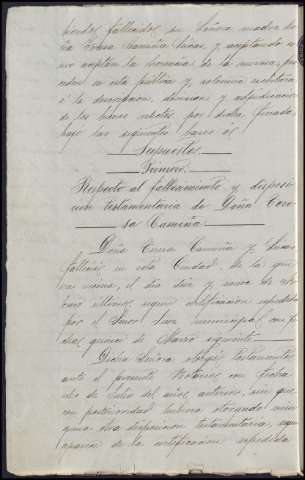 biendo fallecido su Señora madre do-
ña Teresa Caamiña Lucas, y aceptando co-
mo aceptan la herencia de la misma, pro-
ceden en esta pública y solemne escritura
á la descripcion, division y adjudicacion
de los bienes relictos por dicha finada,
bajo las siguientes bases ó
Supuestos
Primero
Respecto al fallecimiento y disposi-
cion testamentaria de Doña Tere-
sa Caamiña
Doña Teresa Caamiña y Lucas
falleció en esta Ciudad, de la que
era vecina, el dia diez y nueve de Fe-
brero último, segun certificacion expedida
por el Señor Juez municipal con fe-
cha quince de Marzo siguiente
Dicha Señora otorgó testamento
ante el presente Notario con fecha
de Julio del año anterior, sin que
con posterioridad hubiera otorgado nin-
guna otra disposicion testamentaria, segun
aparece de la certificacion expedida